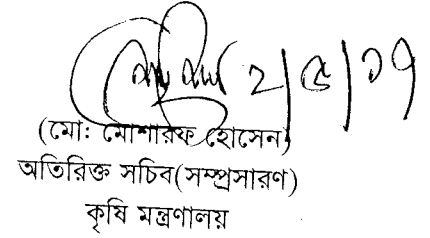 ২|৫|১৭
(মো: মোশারফ হোসেন)
অতিরিক্ত সচিব(সম্প্রসারণ)
কৃষি মন্ত্রণালয়